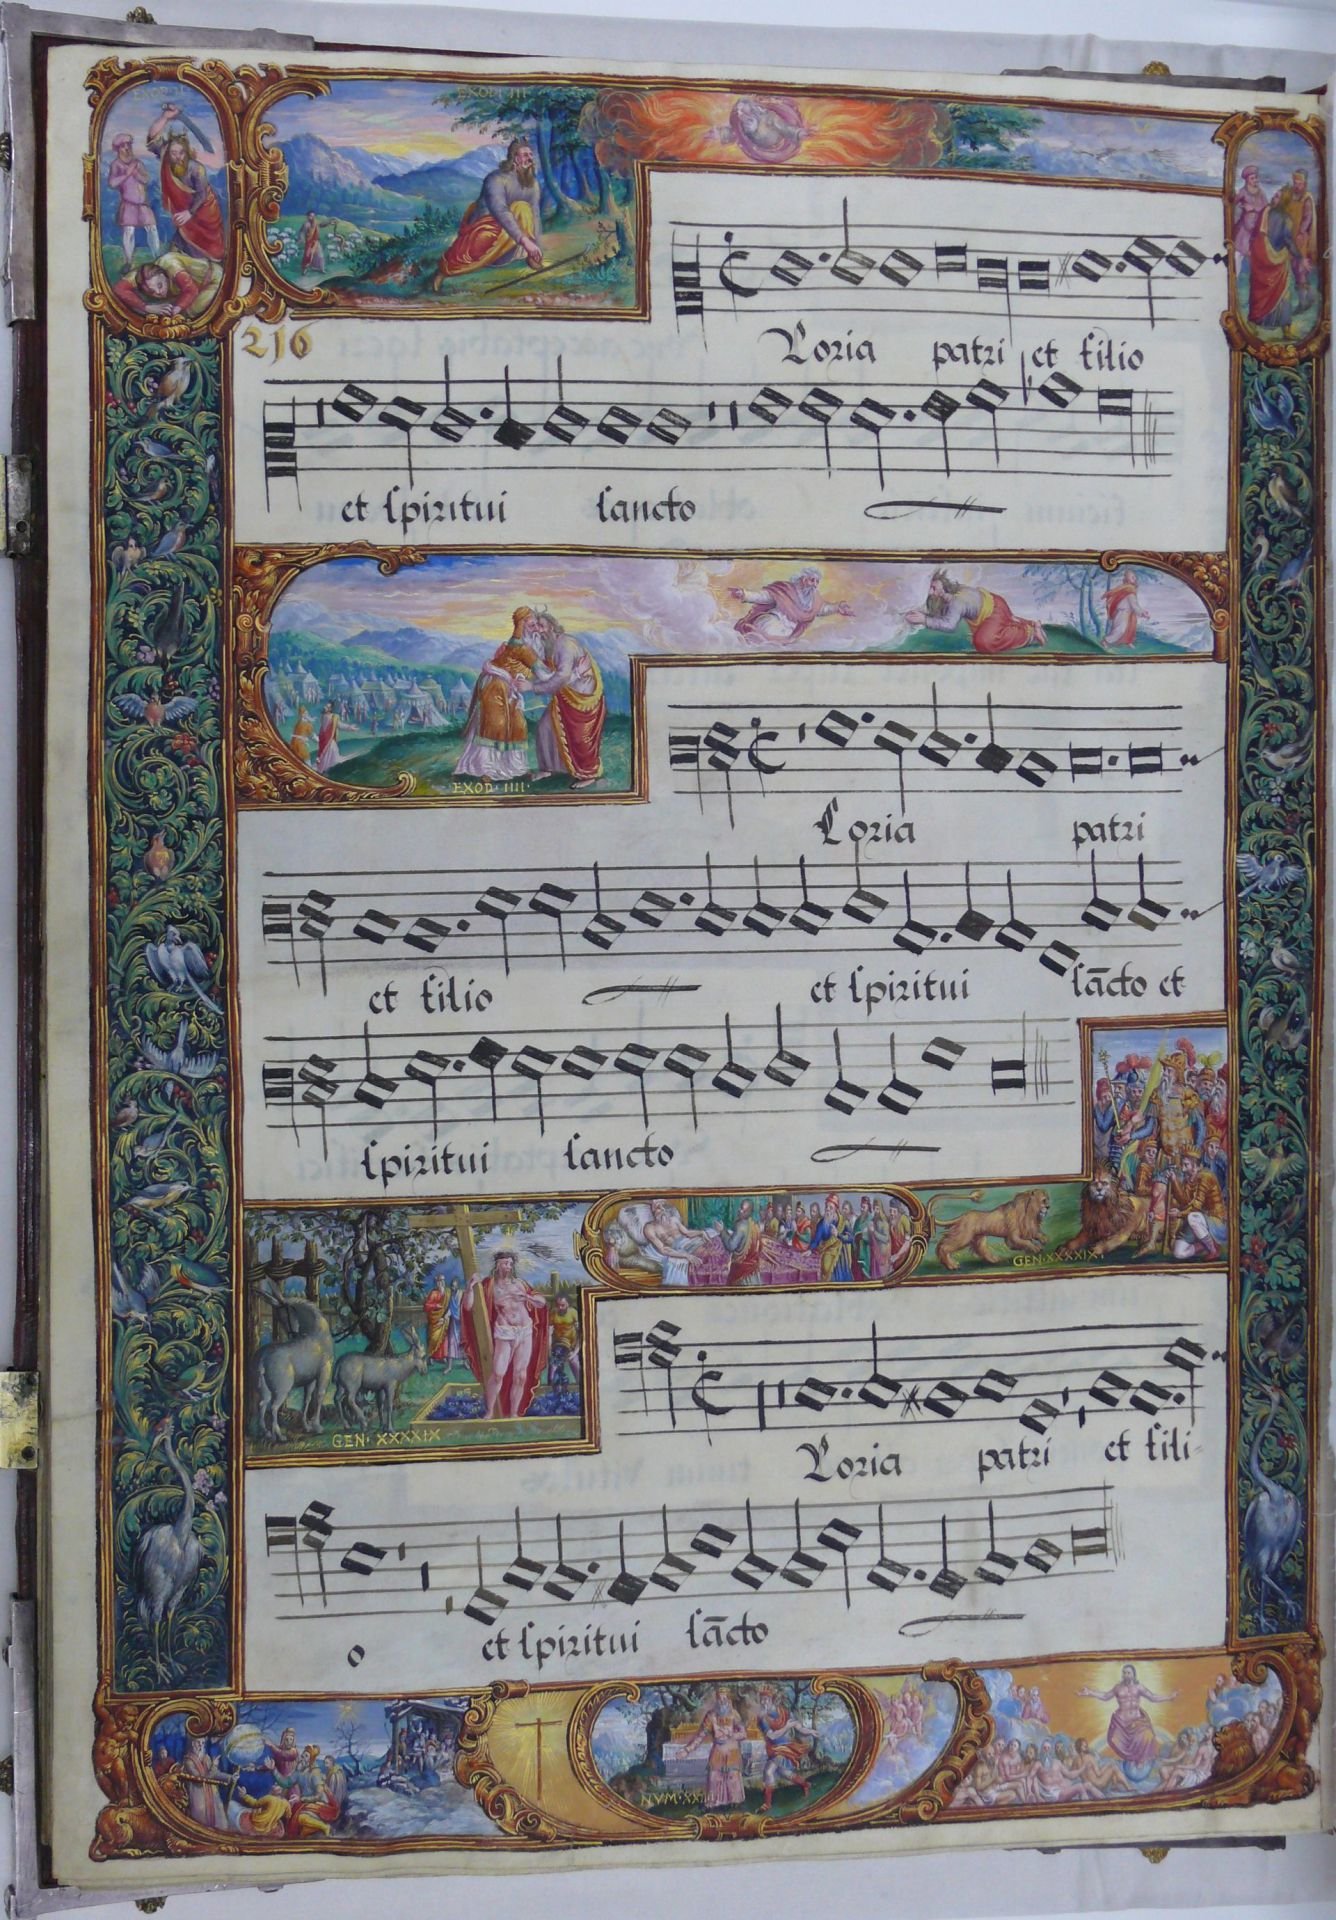 EXOD II
EXOD III
216
Loria patri et filio
et spiritui sancto
EXOD · IIII ·
Loria patri
et filio et spiritui sācto et
spiritui sancto
GEN · XXXXIX ·
GEN · XXXXIX
Loria patri et fili-
o et spiritui sācto